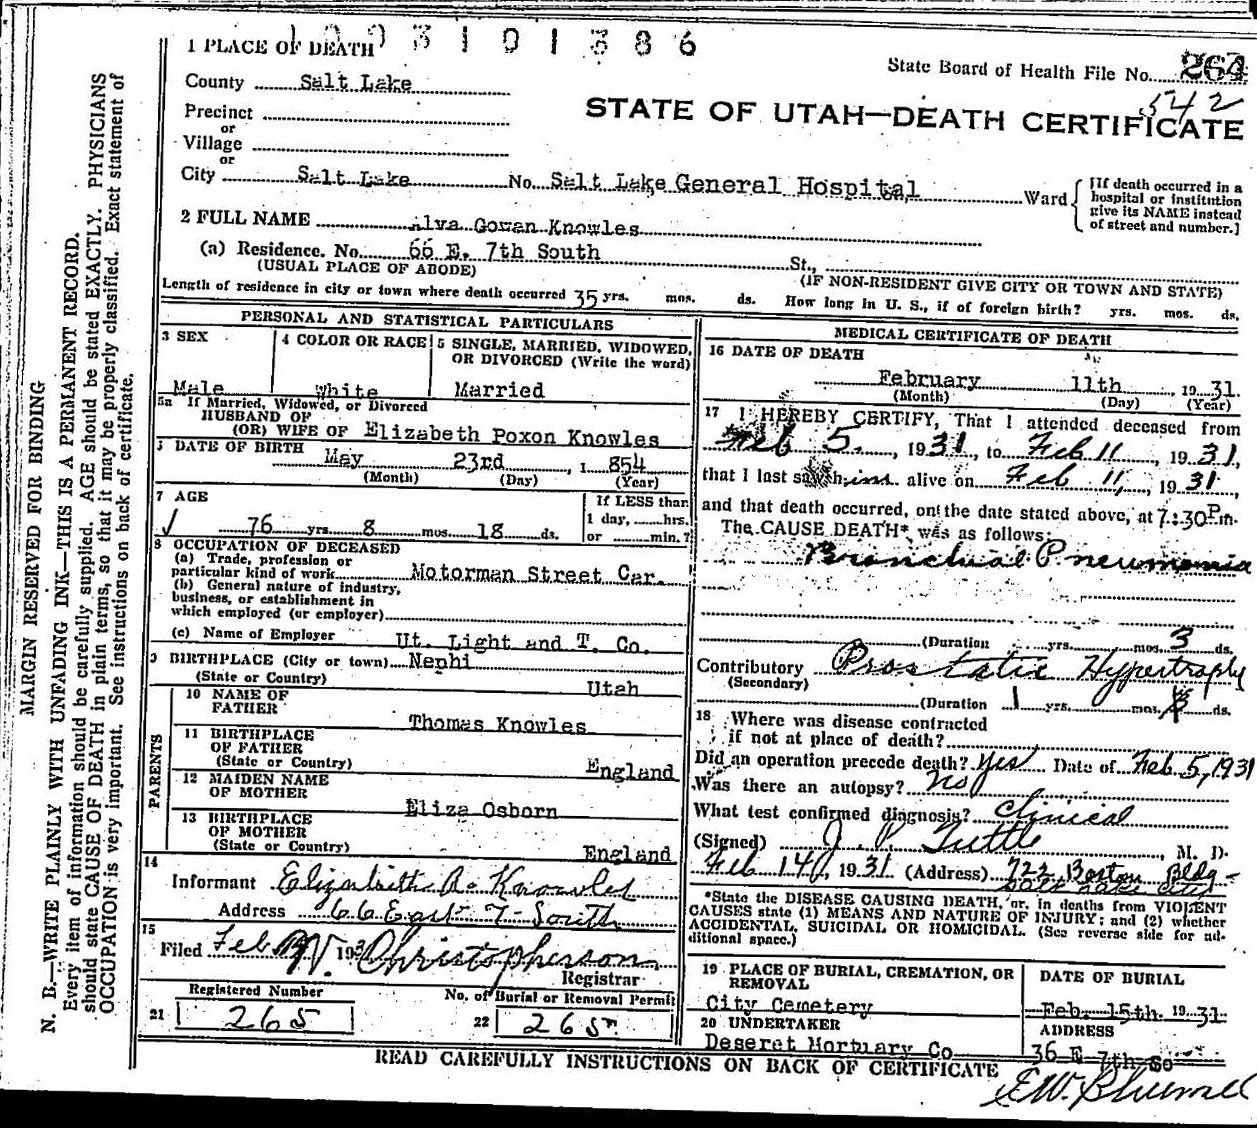 1 PLACE OF DEATH 3 1 0 1 3 8 6
State Board of Health File No. 264
542
County Salt Lake
STATE OF UTAH—DEATH CERTIFICATE
Precinct
or
Village
or
City Salt Lake No. Salt Lake General Hospital Ward
[If death occurred in a
hospital or institution
give its NAME instead
of street and number.]
2 FULL NAME Alva Gowan Knowles
(a) Residence. No. 66 E. 7th South St.,
(USUAL PLACE OF ABODE) (IF NON-RESIDENT GIVE CITY OR TOWN AND STATE)
Length of residence in city or town where death occurred 35 yrs. mos. ds. How long in U. S., if of foreign birth? yrs. mos. ds.
PERSONAL AND STATISTICAL PARTICULARS
3 SEX
Male
4 COLOR OR RACE
White
5 SINGLE, MARRIED, WIDOWED,
OR DIVORCED (Write the word)
Married
5a If Married, Widowed, or Divorced
HUSBAND OF
(OR) WIFE OF Elizabeth Poxon Knowles
DATE OF BIRTH May 23rd 1 854
(Month) (Day) (Year)
7 AGE
76 yrs. 8 mos. 18 ds.
If LESS than
1 day, hrs.
or min.?
8 OCCUPATION OF DECEASED
(a) Trade, profession or
particular kind of work Motorman Street Car.
(b) General nature of industry,
business, or establishment in
which employed (or employer)
(c) Name of Employer Ut. Light and T. Co.
9 BIRTHPLACE (City or town) Nephi
(State or Country) Utah
PARENTS
10 NAME OF
FATHER Thomas Knowles
11 BIRTHPLACE
OF FATHER
(State or Country) England
12 MAIDEN NAME
OF MOTHER Eliza Osborn
13 BIRTHPLACE
OF MOTHER
(State or Country) England
14
Informant Elizabeth Knowles
Address 66 East 7 South
15
Filed Feb 193 Christopherson
Registrar
Registered Number
21 265
No. of Burial or Removal Permit
22 265
MEDICAL CERTIFICATE OF DEATH
16 DATE OF DEATH
February 11th 19 31.
(Month) (Day) (Year)
17 I HEREBY CERTIFY, That I attended deceased from
Feb 5, 1931, to Feb 11, 1931,
that I last saw him alive on Feb 11, 1931,
and that death occurred, on the date stated above, at 7:30 P.m.
The CAUSE DEATH* was as follows:
Bronchial Pneumonia
(Duration yrs. mos. 3 ds.
Contributory Prostatic Hypertrophy
(Secondary)
(Duration 1 yrs. mos. ds.
18 Where was disease contracted
if not at place of death?
Did an operation precede death? Yes Date of Feb 5, 1931
Was there an autopsy? No
What test confirmed diagnosis? Clinical
(Signed) J. P. Tuttle, M. D.
Feb 14, 1931 (Address) 722 Boston Bldg-
Salt Lake City
*State the DISEASE CAUSING DEATH, or, in deaths from VIOLENT
CAUSES state (1) MEANS AND NATURE OF INJURY; and (2) whether
ACCIDENTAL, SUICIDAL OR HOMICIDAL. (See reverse side for ad-
ditional space.)
19 PLACE OF BURIAL, CREMATION, OR
REMOVAL
City Cemetery
DATE OF BURIAL
Feb. 15th 19 31
20 UNDERTAKER
Deseret Mortuary Co
ADDRESS
36 E 7th So
READ CAREFULLY INSTRUCTIONS ON BACK OF CERTIFICATE
MARGIN RESERVED FOR BINDING
N. B.—WRITE PLAINLY WITH UNFADING INK—THIS IS A PERMANENT RECORD.
Every item of information should be carefully supplied. AGE should be stated EXACTLY. PHYSICIANS
should state CAUSE OF DEATH in plain terms, so that it may be properly classified. Exact statement of
OCCUPATION is very important. See instructions on back of certificate.